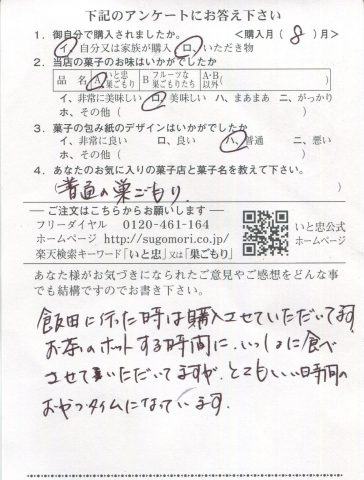 下記のアンケートにお答え下さい
1. 御自分で購入されましたか。 <購入月( 8 )月>
イ、自分又は家族が購入 ロ、いただき物
2. 当店の菓子のお味はいかがでしたか
品 名 A いと忠巣ごもり B フルーツな巣ごもり A・B以外( )
イ、非常に美味しい ロ、美味しい ハ、まぁまぁ ニ、がっかり
ホ、その他( )
3. 菓子の包み紙のデザインはいかがでしたか
イ、非常に良い ロ、良い ハ、普通 ニ、悪い
ホ、その他( )
4. あなたのお気に入りの菓子店と菓子名を教えて下さい。
(普通の巣ごもり. )
― ご注文はこちらからお願いします ―
フリーダイヤル 0120-461-164
ホームページ http://sugomori.co.jp/
楽天検索キーワード「いと忠」又は「巣ごもり」
いと忠公式
ホームページ
あなた様がお気づきになられたご意見やご感想をどんな事
でも結構ですのでお書き下さい。
飯田に行った時は購入させていただいてます
お茶のホットする時間に、いっしょに食べ
させていただいてますが、とてもいい時間の
おやつタイムになっています.